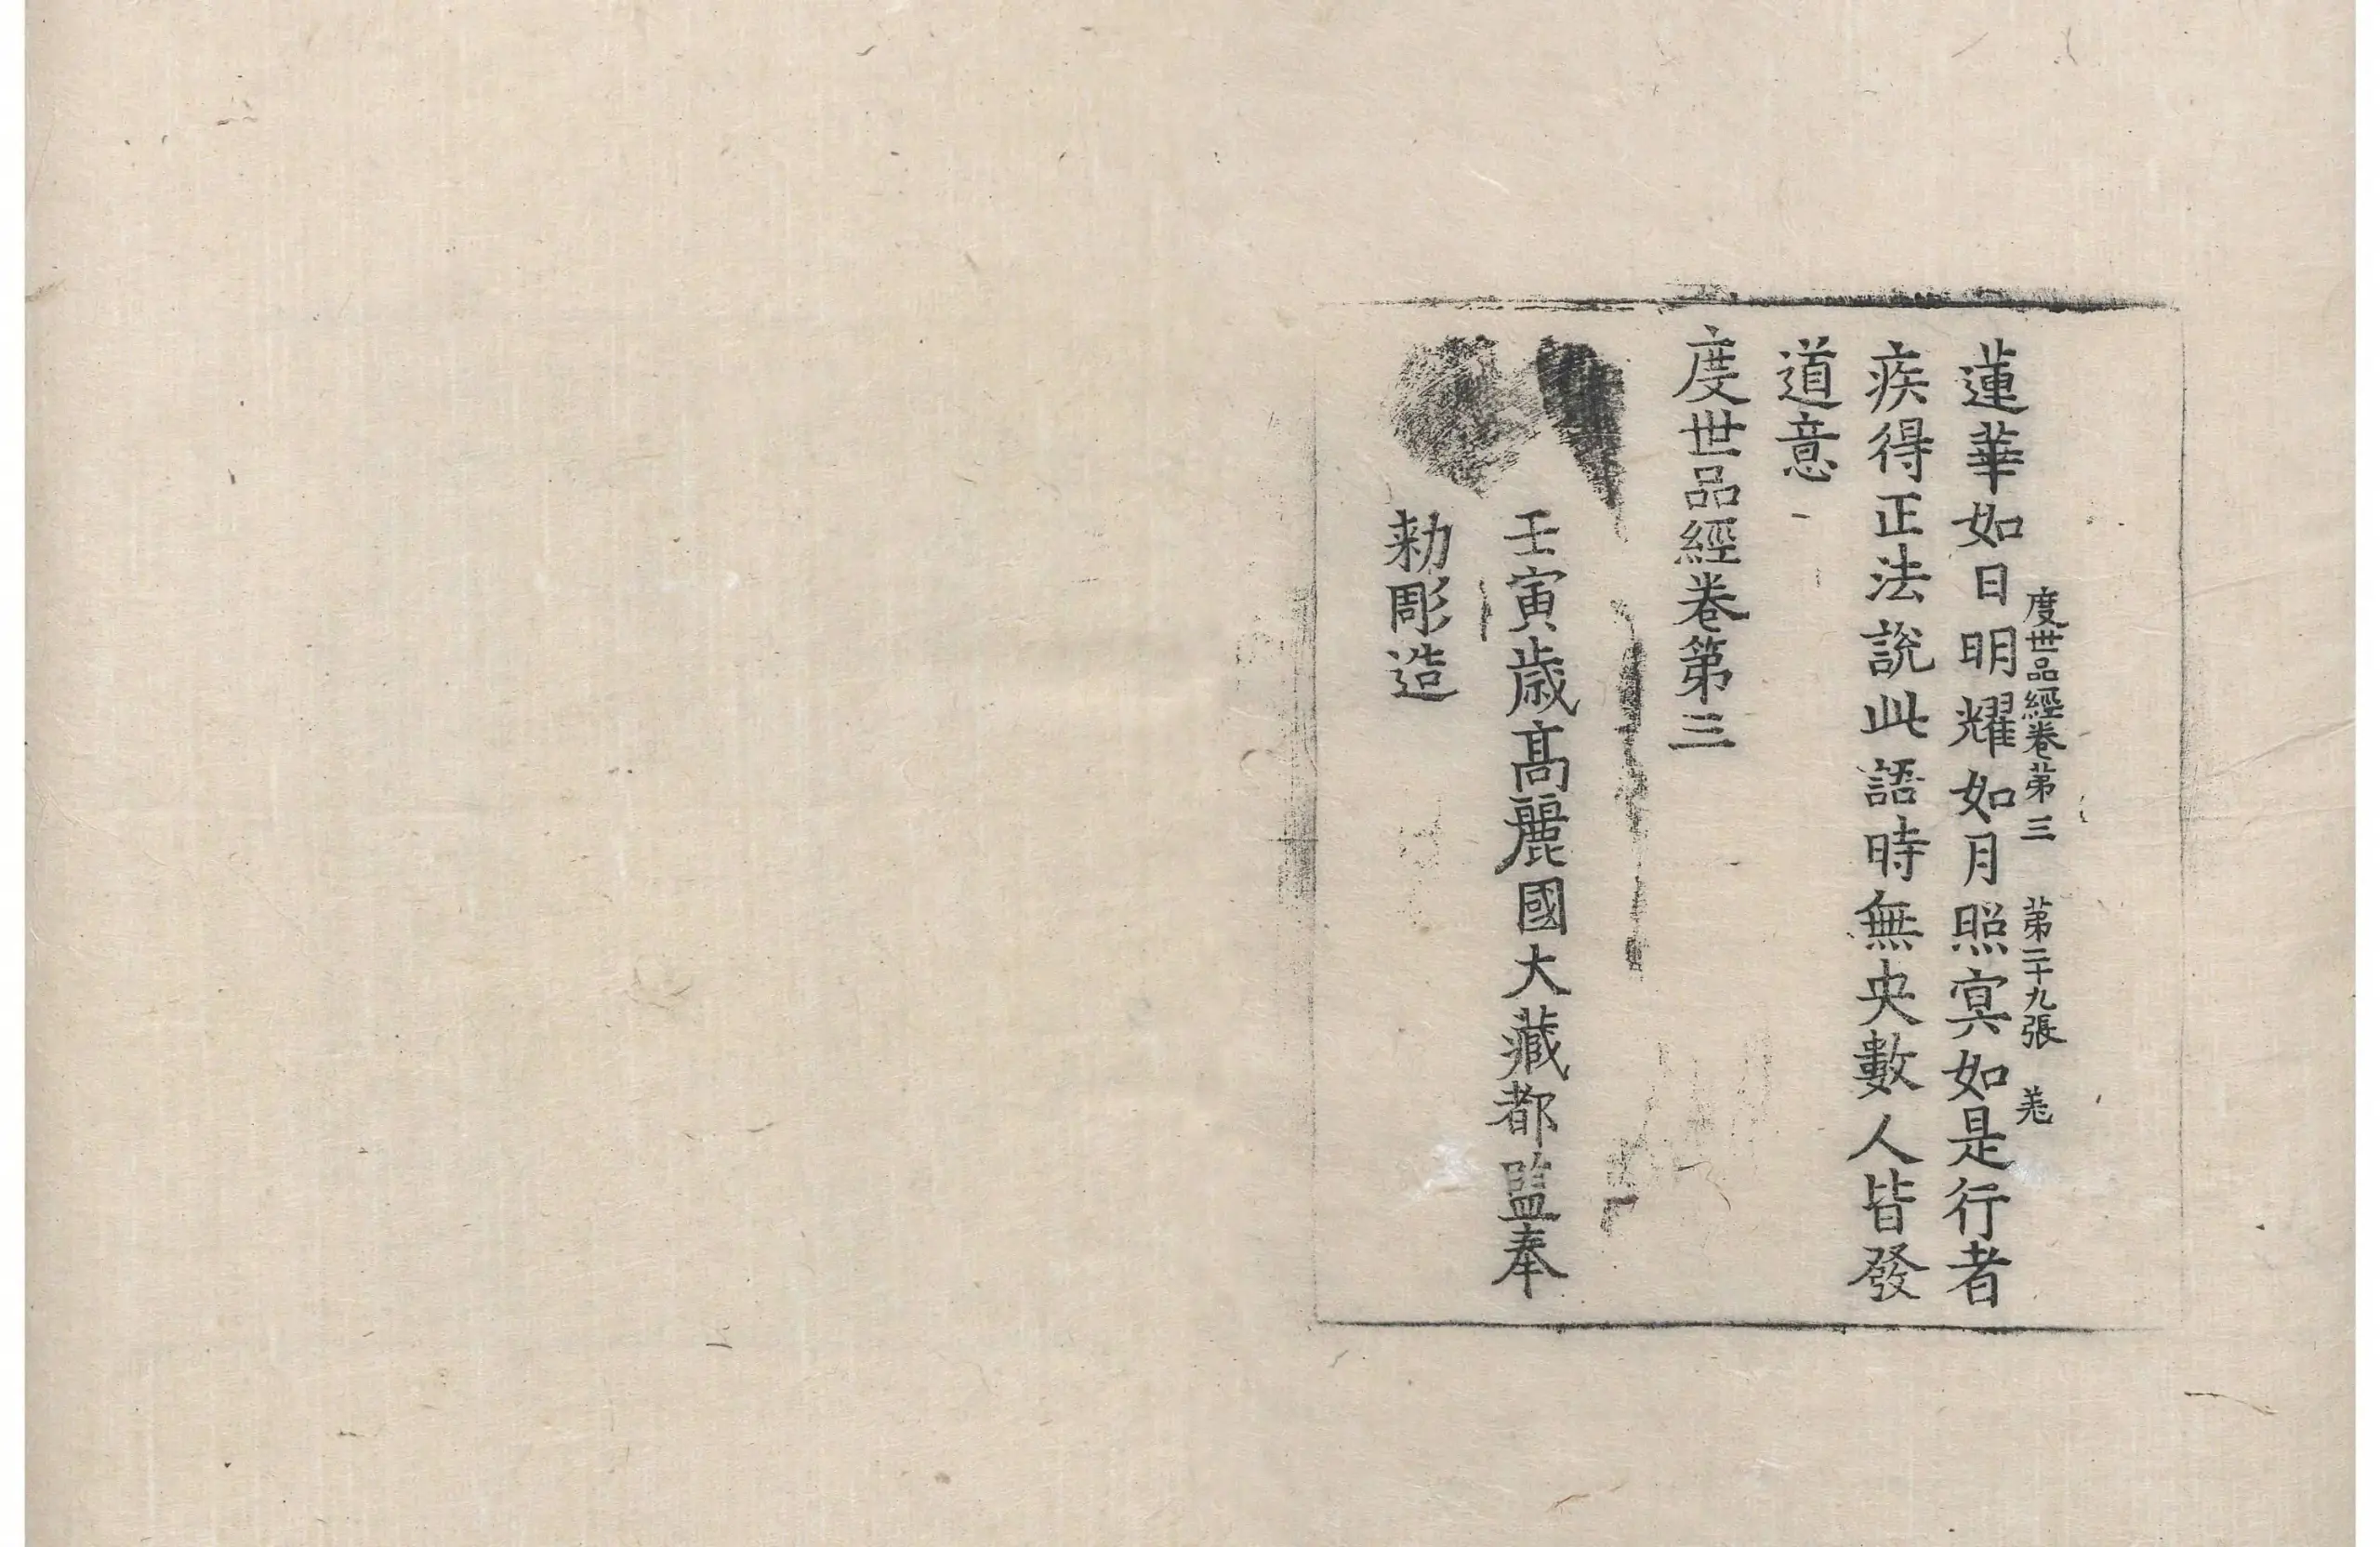 度世品經卷第三 第二十九張 羌
蓮華如日明耀如月照冥如是行者
疾得正法說此語時無央數人皆發
道意
度世品經卷第三
壬寅歲高麗國大藏都監奉
勑彫造